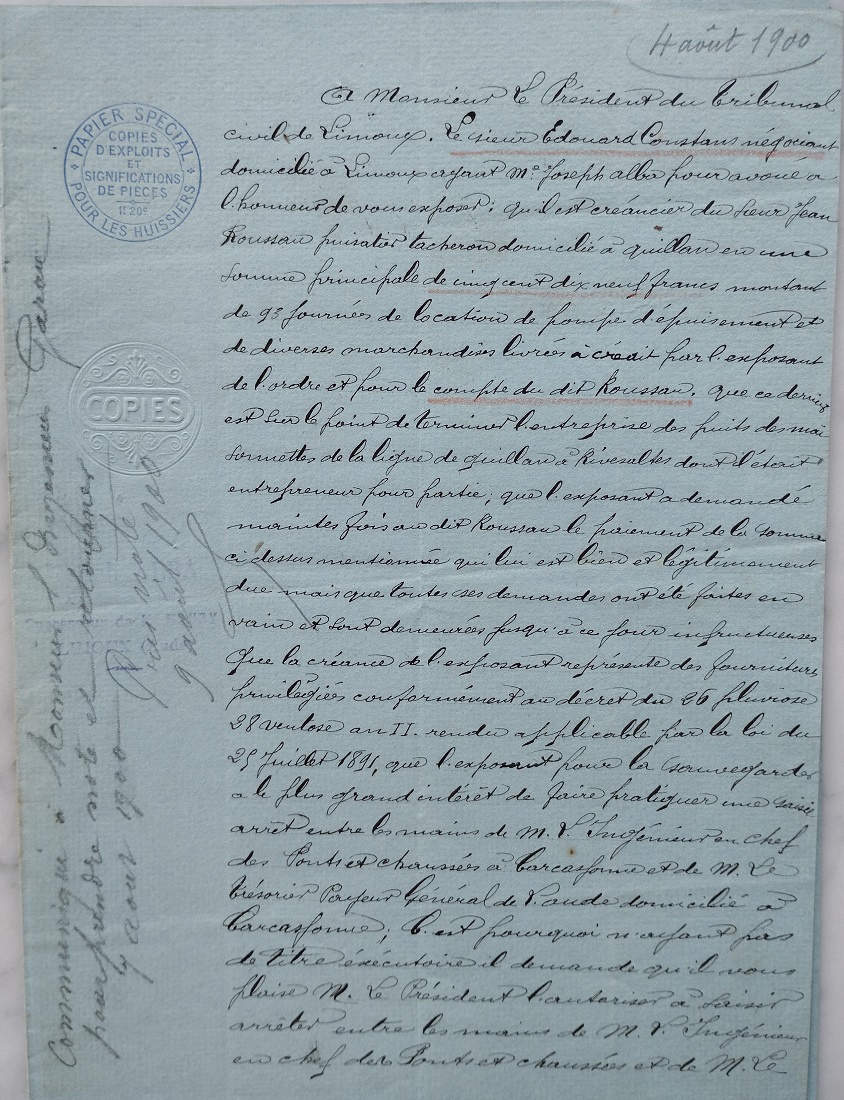 4 août 1900
PAPIER SPÉCIAL
COPIES
D'EXPLOITS
ET
SIGNIFICATIONS
DE PIÈCES
POUR LES HUISSIERS
COPIES
A Monsieur Le Président du tribunal
civil de Limoux. Le sieur Edouard Constans négociant
domicilié à Limoux ayant Me Joseph alba pour avoué a
l'honneur de vous exposer; qu'il est créancier du sieur Jean
Roussan puisatier tacheron domicilié à quillan en une
somme principale de cinq cent dix neuf francs montant
de 93 journées de location de pompe d'épuisement et
de diverses marchandises livrées à crédit par l'exposant
de l'ordre et pour le compte du dit Roussan. que ce dernier
est sur le point de terminer l'entreprise des puits des mai
sonnettes de la ligne de quillan à Rivesaltes dont il était
entrepreneur pour partie; que l'exposant a demandé
maintes fois au dit Roussan le paiement de la somme
ci dessus mentionnée qui lui est bien et légitimement
due mais que toutes ses demandes ont été faites en
vain et sont demeurées jusqu'à ce jour infructueuses
Que la créance de l'exposant représente des fournitures
privilégiées conformément au décret du 26 pluviose
28 ventose an II. rendu applicable par la loi du
25 Juillet 1891, que l'exposant pour la sauvegarder
a le plus grand intérêt de faire pratiquer une saisie
arrêt entre les mains de M. L'Ingénieur en chef
des Ponts et chaussées à Carcassonne et de M. Le
trésorier Payeur Général de l'aude domicilié à
Carcassonne; C'est pourquoi n'ayant pas
de titre éxécutoire il demande qu'il vous
plaise M. Le Président l'autoriser à saisir
arrêter entre les mains de M. L'Ingénieur
en chef des Ponts et chaussées et de M. Le
Communiqué à Monsieur l'Ingénieur
pour prendre note et retourner
4 août 1900
Pris note
9 août 1900